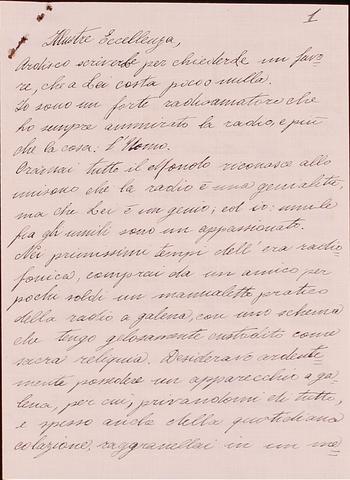 1
Illustre Eccellenza,
Ardisco scriverLe per chiederLe un favo=
re, che a Lei costa poco o nulla.
Io sono un forte radioamatore che
ho sempre ammirato la radio, e più
che la cosa: l'Uomo.
Oramai tutto il Mondo riconosce allo
unisono che la radio è una genialità,
ma che Lei è un genio; ed io: umile
fra gli umili sono un appassionato.
Nei primissimi tempi dell'era radio
fonica, comprai da un amico per
pochi soldi un manualetto pratico
della radio a galena, con uno schema
che tengo gelosamente custodito come
sacra reliquia. Desideravo ardente=
mente possedere un apparecchio a ga=
lena, per cui, privandomi di tutto,
e spesso anche della quotidiana
colazione, raggranellai in un me=